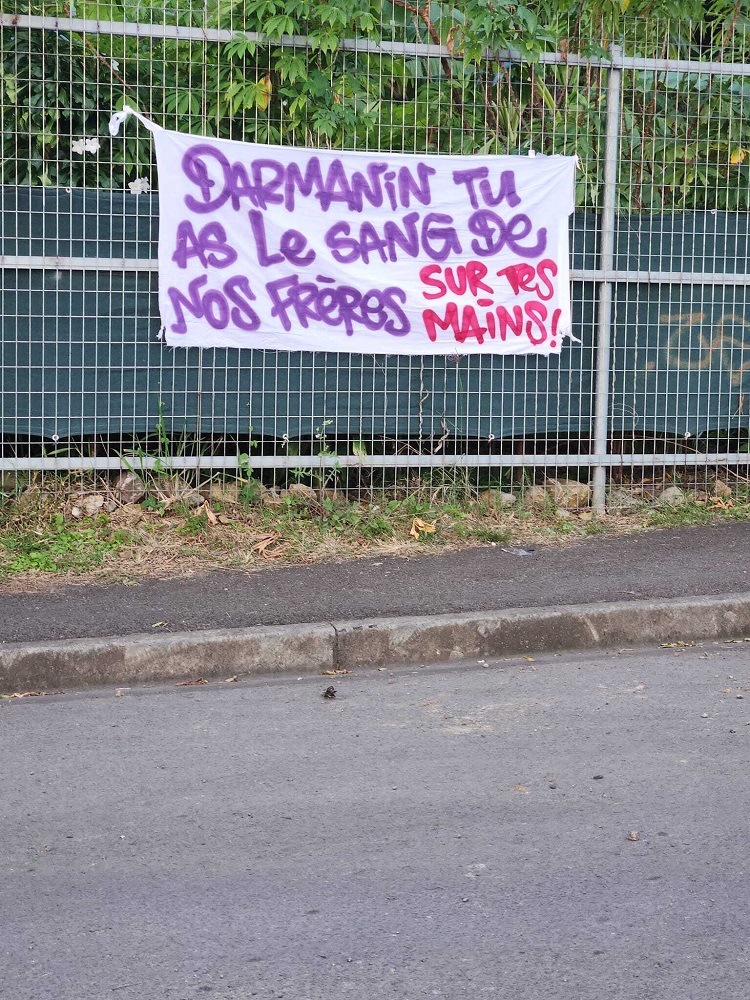 DARMANiN TU
AS Le SANG De
NOS FRÈRES SUR Tes
MAiNS!